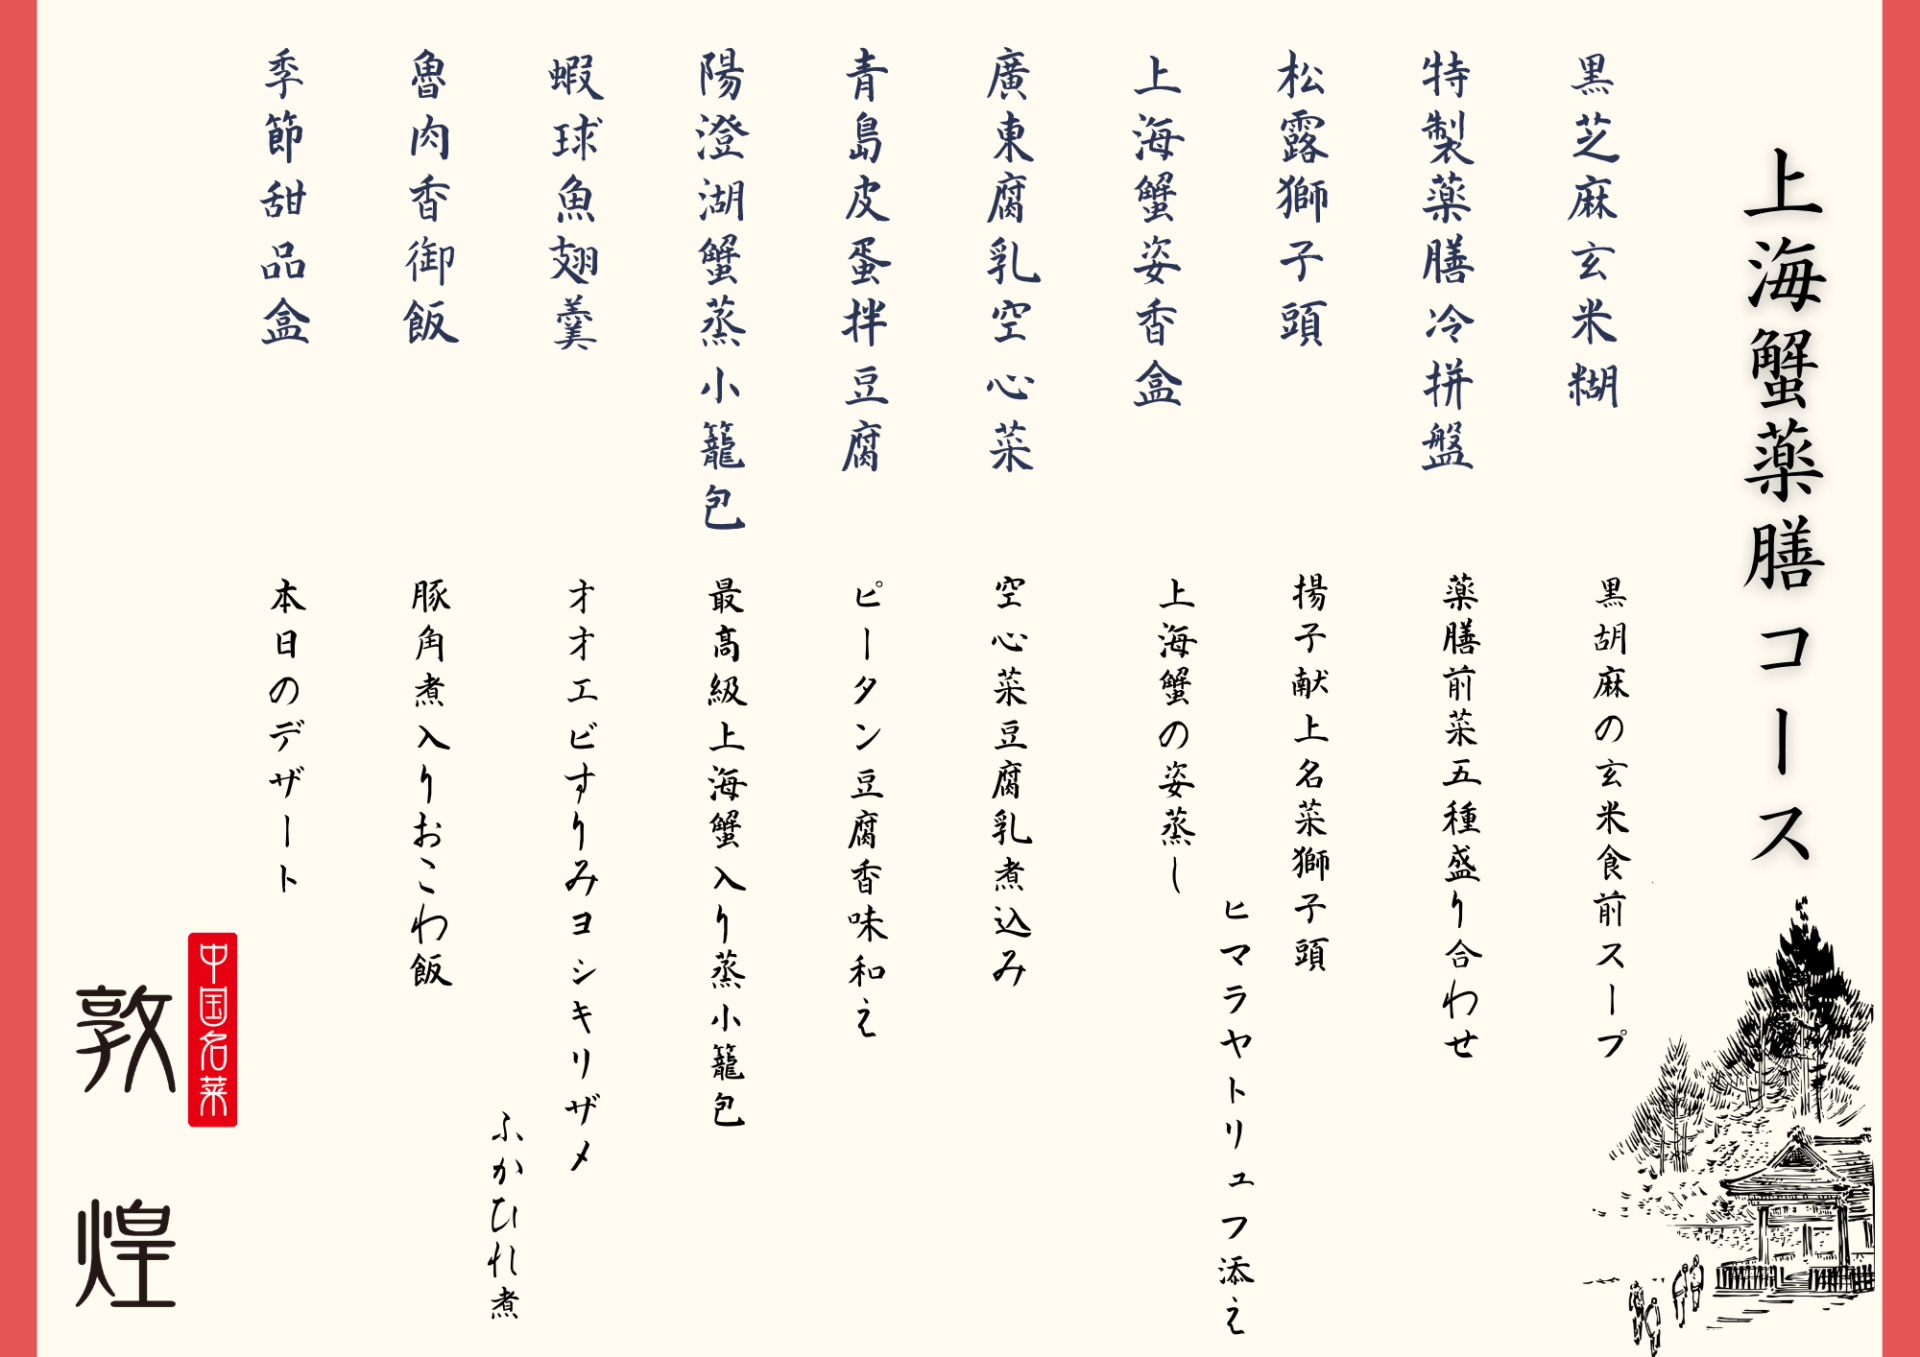 上海蟹薬膳コース
黒芝麻玄米糊
黒胡麻の玄米食前スープ
特製薬膳冷拼盤
薬膳前菜五種盛り合わせ
松露獅子頭
揚子献上名菜獅子頭
ヒマラヤトリュフ添え
上海蟹姿香盒
上海蟹の姿蒸し
廣東腐乳空心菜
空心菜豆腐乳煮込み
青島皮蛋拌豆腐
ピータン豆腐香味和え
陽澄湖蟹蒸小籠包
最高級上海蟹入り蒸小籠包
蝦球魚翅羹
オオエビすりみヨシキリザメ
ふかひれ煮
魯肉香御飯
豚角煮入りおこわ飯
季節甜品盒
本日のデザート
中国名菜
敦煌